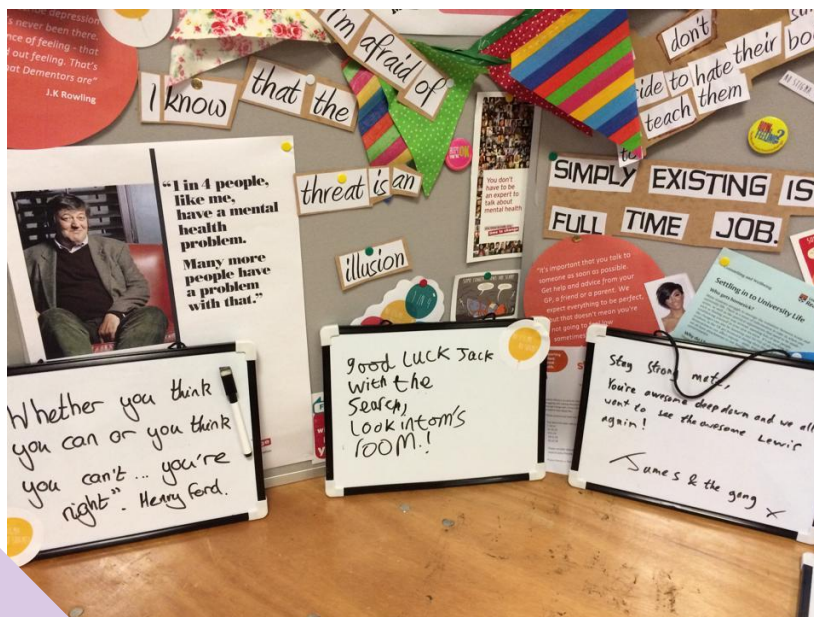 depression
's never been there.
nce of feeling - that
d out feeling. That's
at Dementors are"
J.K Rowling
I know
that the
I'm afraid of
threat is an
illusion
don't
their
to hate
teach them
"1 in 4 people,
like me,
have a mental
health
problem.
Many more
people have
a problem
with that."
You don't
have to be
an expert to
talk about
mental health
SIMPLY EXISTING IS
FULL TIME JOB.
"It's important that you talk to
someone as soon as possible.
Get help and advice from your
GP, a friend or a parent. We
expect everything to be perfect,
but that doesn't mean you're
not going to
sometimes
Settling in to University Life
Whether you think
you can or you think
you can't... you're
right". Henry Ford.
good Luck Jack
with the
Search,
Look in tom's
rOOM.!
Stay strong mate,
You're awesome deep down and we all
want to see the awesome Lewis
again!
James & the gang x